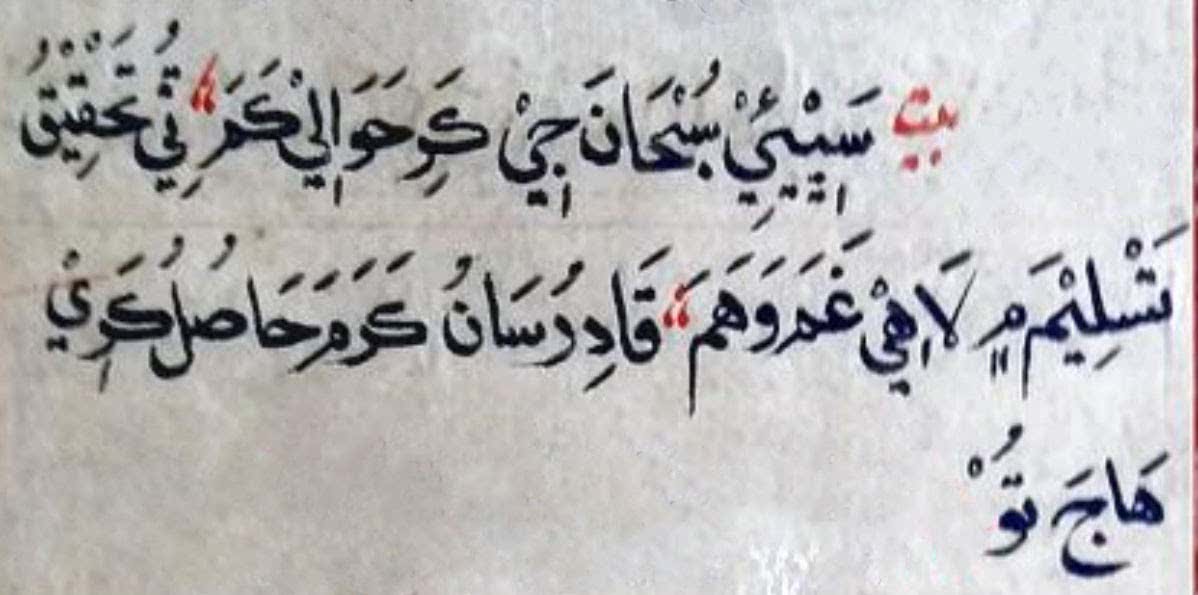 بيت سَڀِيْئِيْ سُبْحَانَ جِيْ ڪَرِ حَوَالِيْ ڪَمَ “ ٿِي تَحْقِيْقُ
تَسْلِيْمَ مٍ لَاهِيْ غَمَ وَهَمَ “ قَادِرُ سَانُ ڪَرَمَ حَاصُلُ ڪَرِيْ
هَاجَ تُوْ